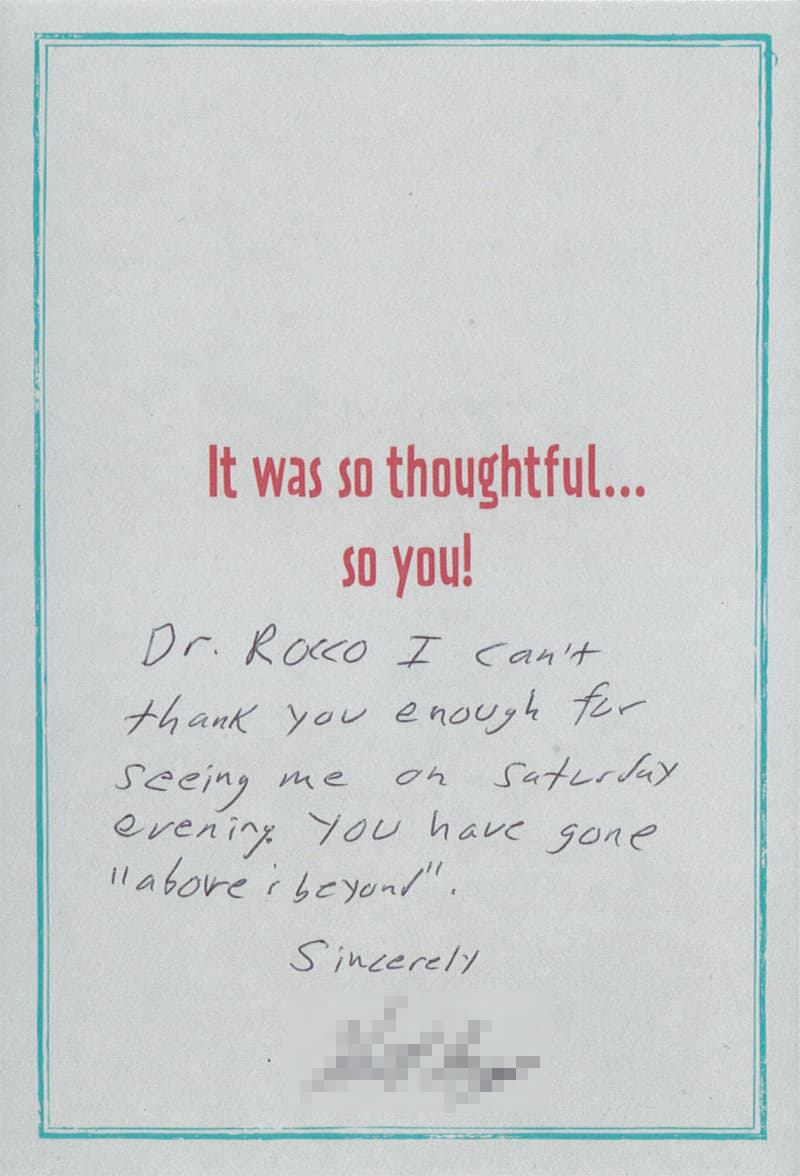 It was so thoughtful...
so you!
Dr. Rocco I can't
thank you enough for
seeing me on Saturday
evening. You have gone
"above & beyond".
Sincerely